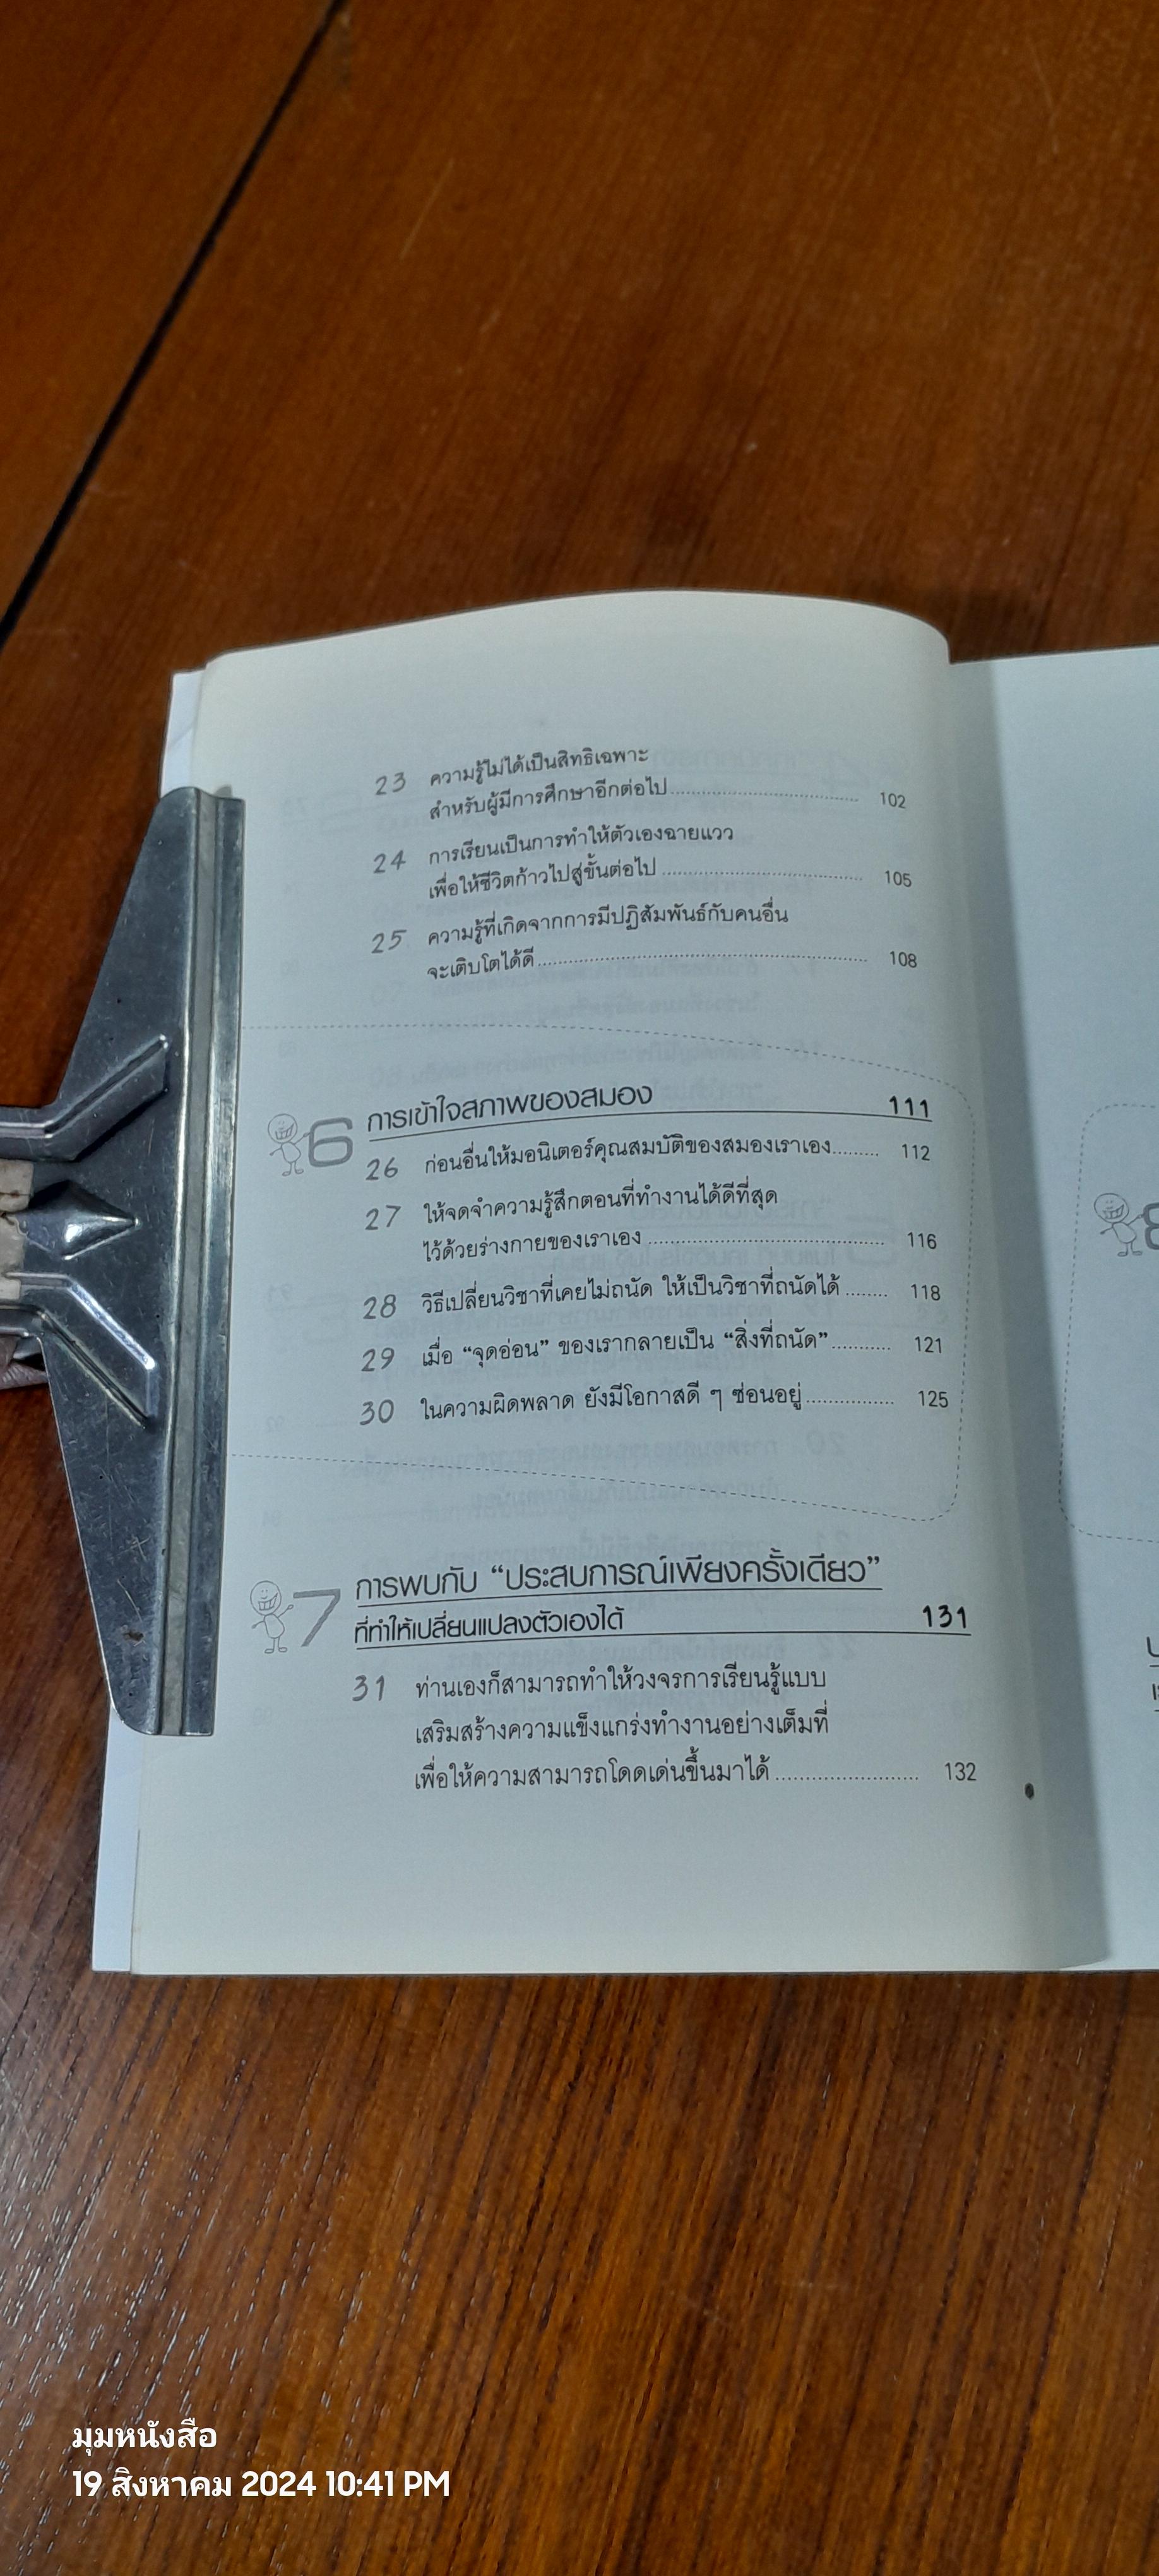 23 ความรู้ไม่ได้เป็นสิทธิเฉพาะ
สำหรับผู้มีการศึกษาอีกต่อไป 102
24 การเรียนเป็นการทำให้ตัวเองฉายแวว
เพื่อให้ชีวิตก้าวไปสู่ขั้นต่อไป 105
25 ความรู้ที่เกิดจากการมีปฏิสัมพันธ์กับคนอื่น
จะเติบโตได้ดี 108
6 การเข้าใจสภาพของสมอง 111
26 ก่อนอื่นให้มอนิเตอร์คุณสมบัติของสมองเราเอง 112
27 ให้จดจำความรู้สึกตอนที่ทำงานได้ดีที่สุด
ไว้ด้วยร่างกายของเราเอง 116
28 วิธีเปลี่ยนวิชาที่เคยไม่ถนัด ให้เป็นวิชาที่ถนัดได้ 118
29 เมื่อ “จุดอ่อน” ของเรากลายเป็น “สิ่งที่ถนัด” 121
30 ในความผิดพลาด ยังมีโอกาสดี ๆ ซ่อนอยู่ 125
7 การพบกับ “ประสบการณ์เพียงครั้งเดียว”
ที่ทำให้เปลี่ยนแปลงตัวเองได้ 131
31 ท่านเองก็สามารถทำให้วงจรการเรียนรู้แบบ
เสริมสร้างความแข็งแกร่งทำงานอย่างเต็มที่
เพื่อให้ความสามารถโดดเด่นขึ้นมาได้ 132
8
มุมหนังสือ
19 สิงหาคม 2024 10:41 PM